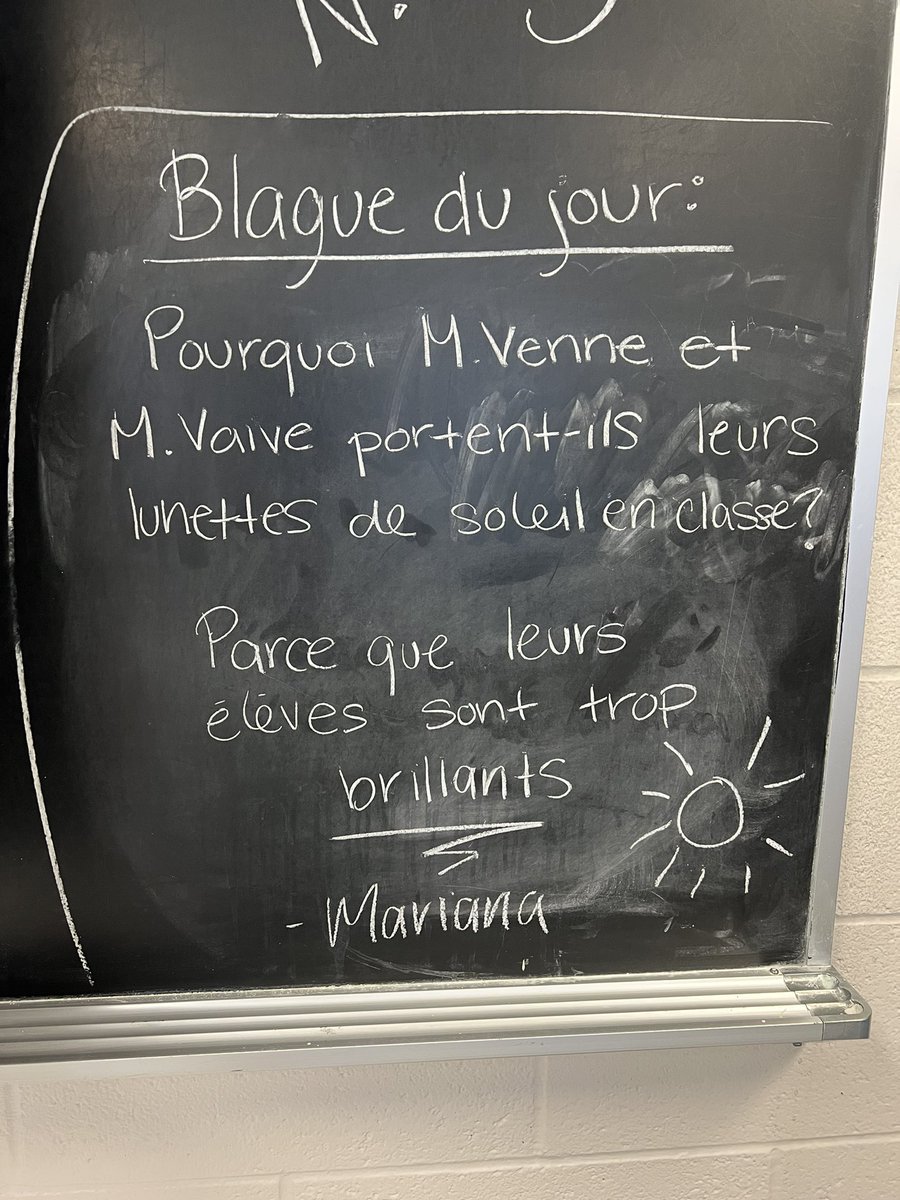 Blague du jour:
Pourquoi M. Venne et
M. Vaive portent-ils leurs
lunettes de soleil en classe?
Parce que leurs
élèves sont trop
brillants
- Mariana